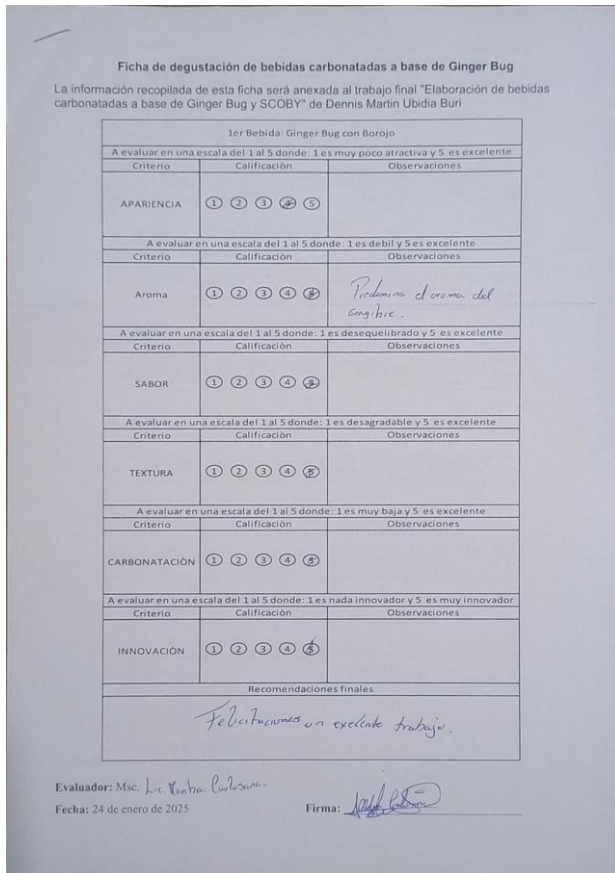 Ficha de degustación de bebidas carbonatadas a base de Ginger Bug
La información recopilada de esta ficha será anexada al trabajo final "Elaboración de bebidas
carbonatadas a base de Ginger Bug y SCOBY" de Dennis Martin Ubidia Buri
1er Bebida: Ginger Bug con Borojo
A evaluar en una escala del 1 al 5 donde: 1 es muy poco atractiva y 5 es excelente
Criterio Calificaciòn Observaciones
APARIENCIA 1 2 3 4 5
A evaluar en una escala del 1 al 5 donde: 1 es debil y 5 es excelente
Criterio Calificaciòn Observaciones
Aroma 1 2 3 4 5 Predomina el aroma del
Gengibre.
A evaluar en una escala del 1 al 5 donde: 1 es desequelibrado y 5 es excelente
Criterio Calificaciòn Observaciones
SABOR 1 2 3 4 5
A evaluar en una escala del 1 al 5 donde: 1 es desagradable y 5 es excelente
Criterio Calificaciòn Observaciones
TEXTURA 1 2 3 4 5
A evaluar en una escala del 1 al 5 donde: 1 es muy baja y 5 es excelente
Criterio Calificaciòn Observaciones
CARBONATACIÒN 1 2 3 4 5
A evaluar en una escala del 1 al 5 donde: 1 es nada innovador y 5 es muy innovador
Criterio Calificaciòn Observaciones
INNOVACIÒN 1 2 3 4 5
Recomendaciones finales
Felicitaciones un exelente trabajo.
Evaluador: Msc. Lic.
Fecha: 24 de enero de 2025 Firma: